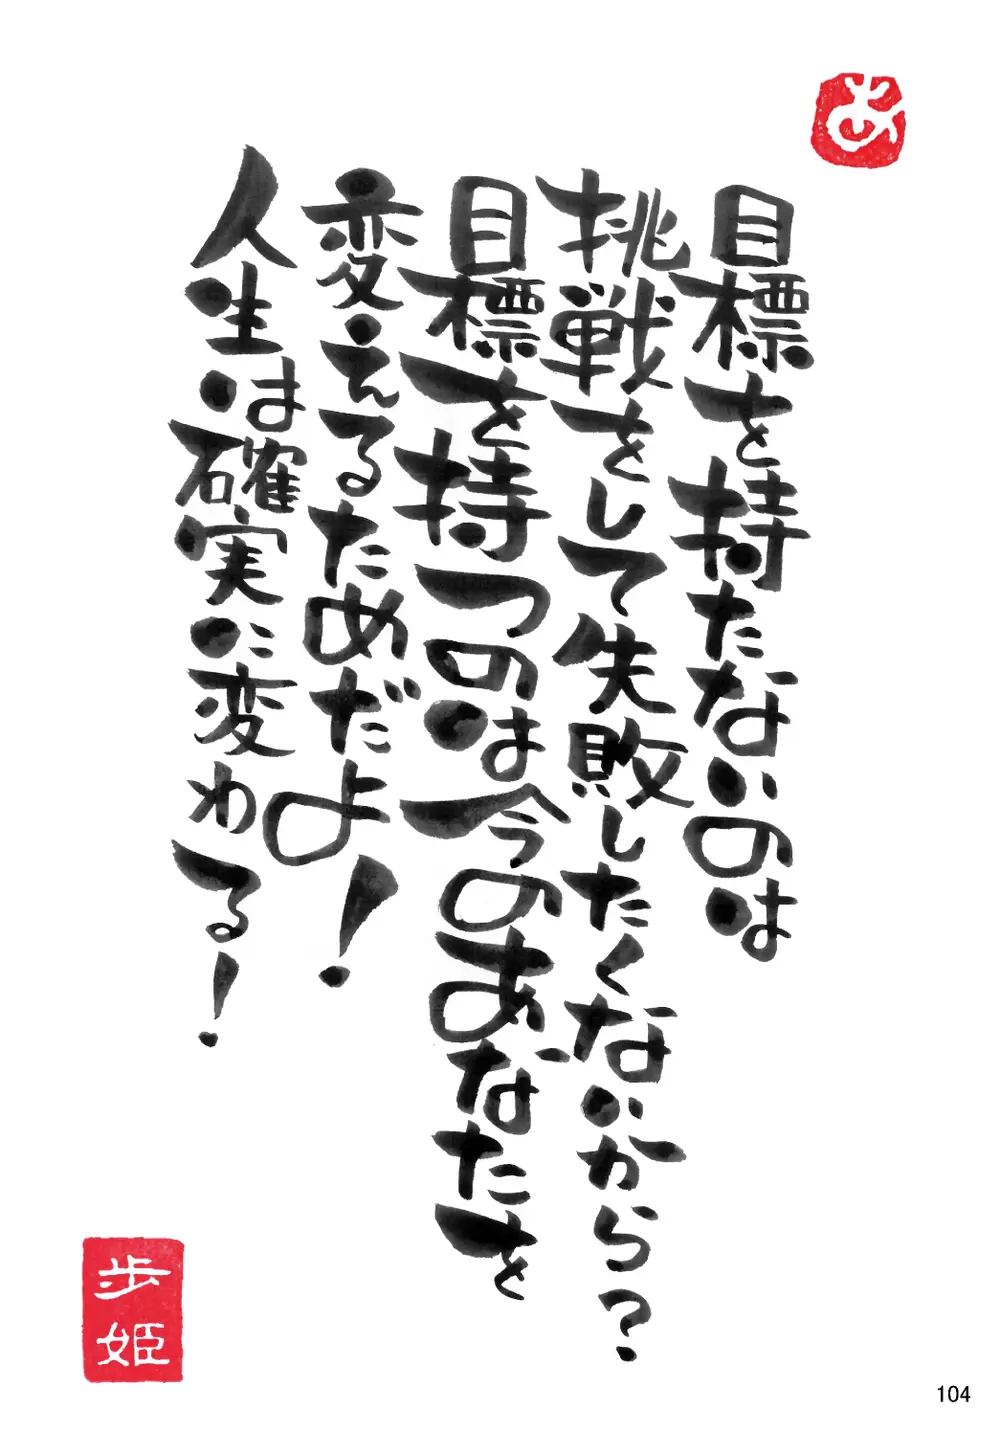 あ
目標を持たないのは
挑戦をして失敗したくないから?
目標を持つのは今のあなたを
変えるためだよ!
人生は確実に変わる!
歩姫
104